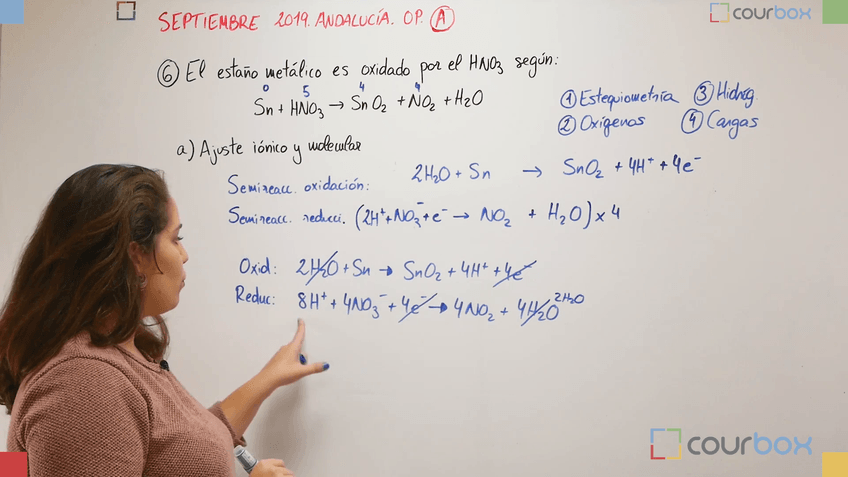 SEPTIEMBRE 2019. ANDALUCÍA. OP. A
courbox
6 El estaño metálico es oxidado por el HNO₃ según:
0 5 4 4
Sn + HNO₃ → SnO₂ + NO₂ + H₂O
1 Estequiometría 3 Hidróg.
2 Oxígenos 4 Cargas
a) Ajuste iónico y molecular
Semireacc. oxidación: 2H₂O + Sn → SnO₂ + 4H⁺ + 4e⁻
Semireacc. reducci. (2H⁺ + NO₃⁻ + e⁻ → NO₂ + H₂O) x 4
Oxid: 2H₂O + Sn → SnO₂ + 4H⁺ + 4e⁻
Reduc: 8H⁺ + 4NO₃⁻ + 4e⁻ → 4NO₂ + 4H₂O 2H₂O
courbox